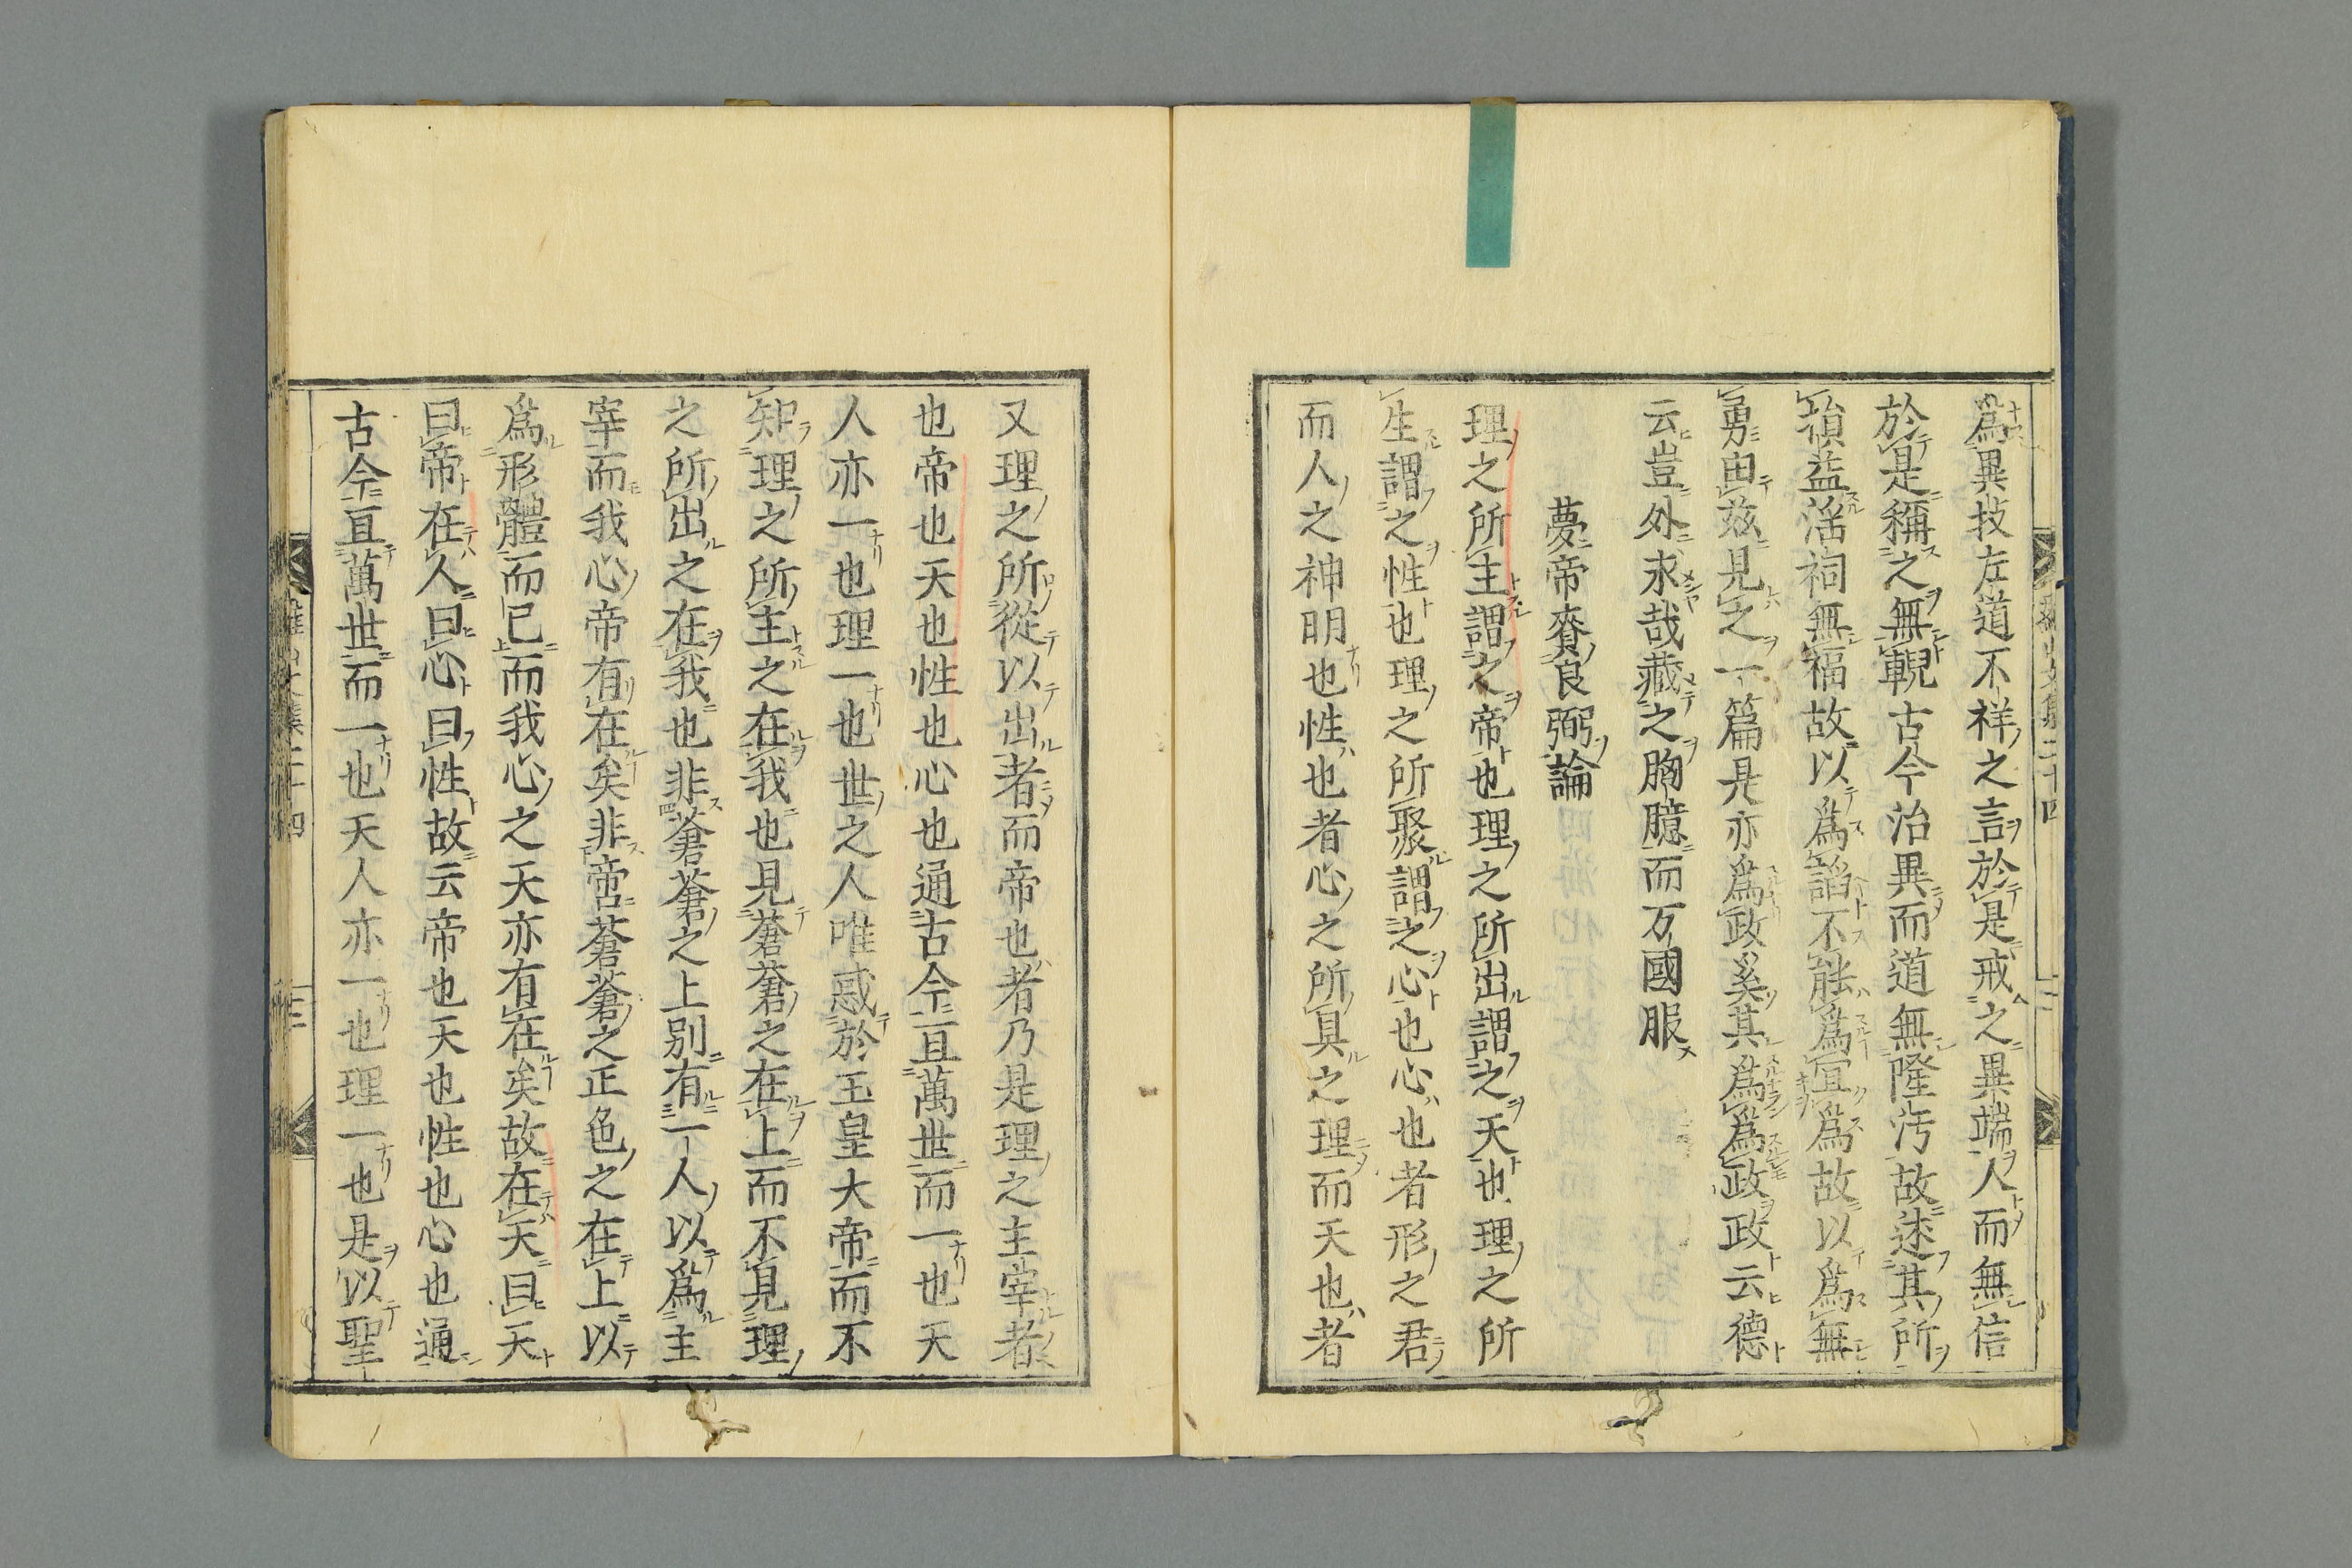 爲異技左道不祥之言於是戒之異端人而無信
於是稱之無輗古今治異而道無隆汚故述其所
損益淫祠無福故以爲諂不能爲宜爲故以爲無
勇由兹見之一篇是亦爲政奚其爲爲政政云德
云豈外求哉藏之胸臆而万國服
夢帝賚良弼論
理之所主謂之帝也理之所出謂之天也理之所
生謂之性也理之所聚謂之心也心也者形之君
而人之神明也性也者心之所具之理而天也者
又理之所從以出者而帝也者乃是理之主宰者
也帝也天也性也心也通古今亘萬世而一也天
人亦一也理一也世之人唯惑於玉皇大帝而不
知理之所主之在我也見蒼蒼之在上而不見理
之所出之在我也非蒼蒼之上別有一人以爲主
宰而我心帝有在矣非啻蒼蒼之正色之在上以
爲形體而已而我心之天亦有在矣故在天曰天
曰帝在人曰心曰性故云帝也天也性也心也通
古今亘萬世而一也天人亦一也理一也是以聖